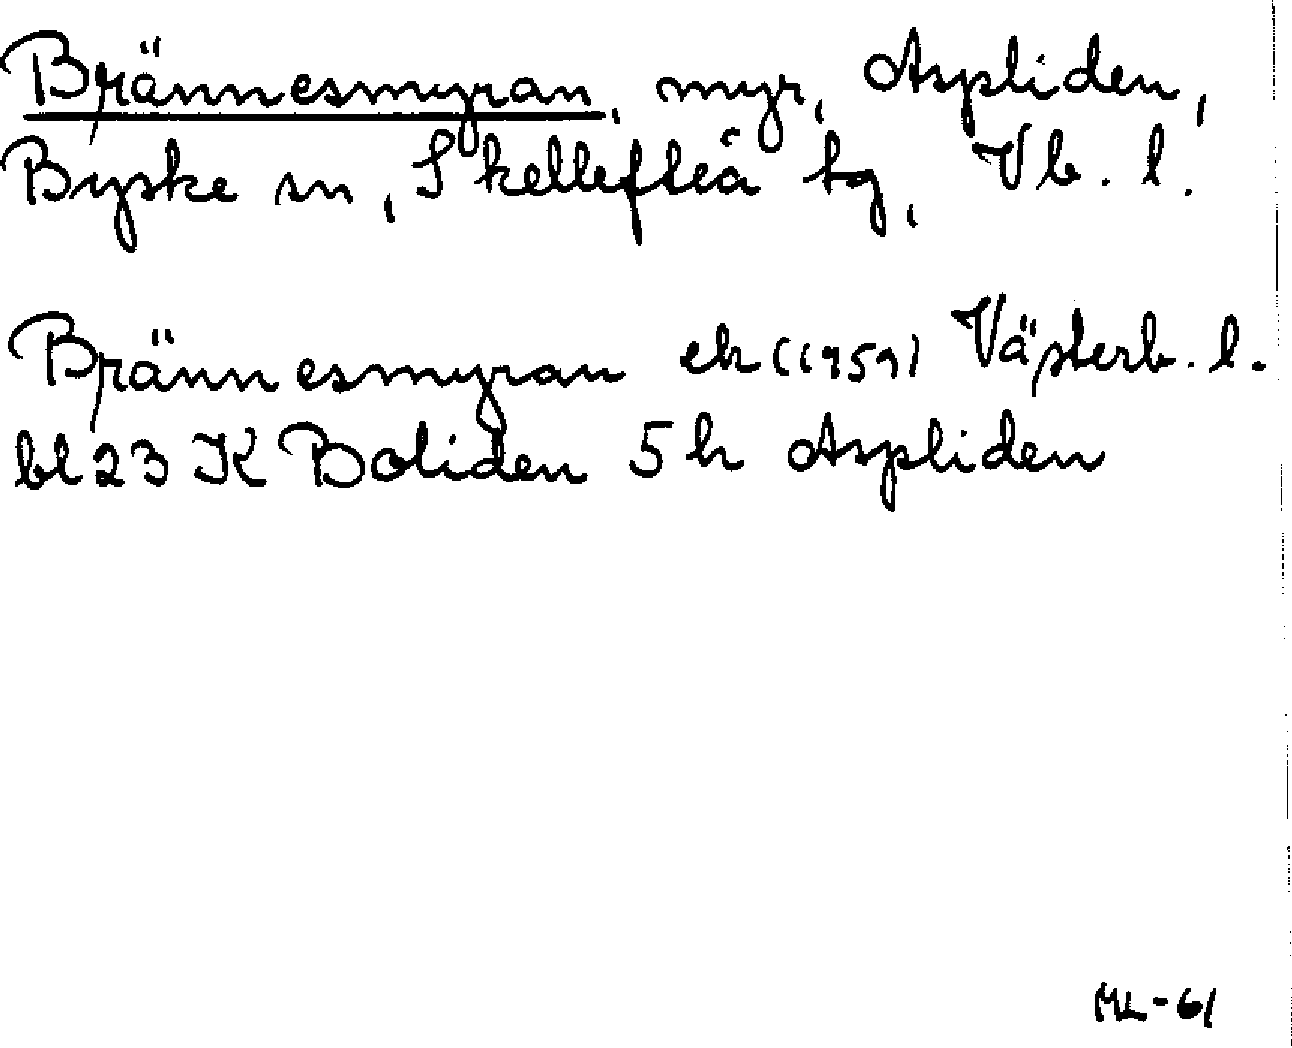 Brännesmyran, myr, Aspliden,
Byske sn, Skellefteå tg, Vb. l.
Brännesmyran ek (1959) Västerb. l.
bl 23 K Boliden 5 h Aspliden
ML-61